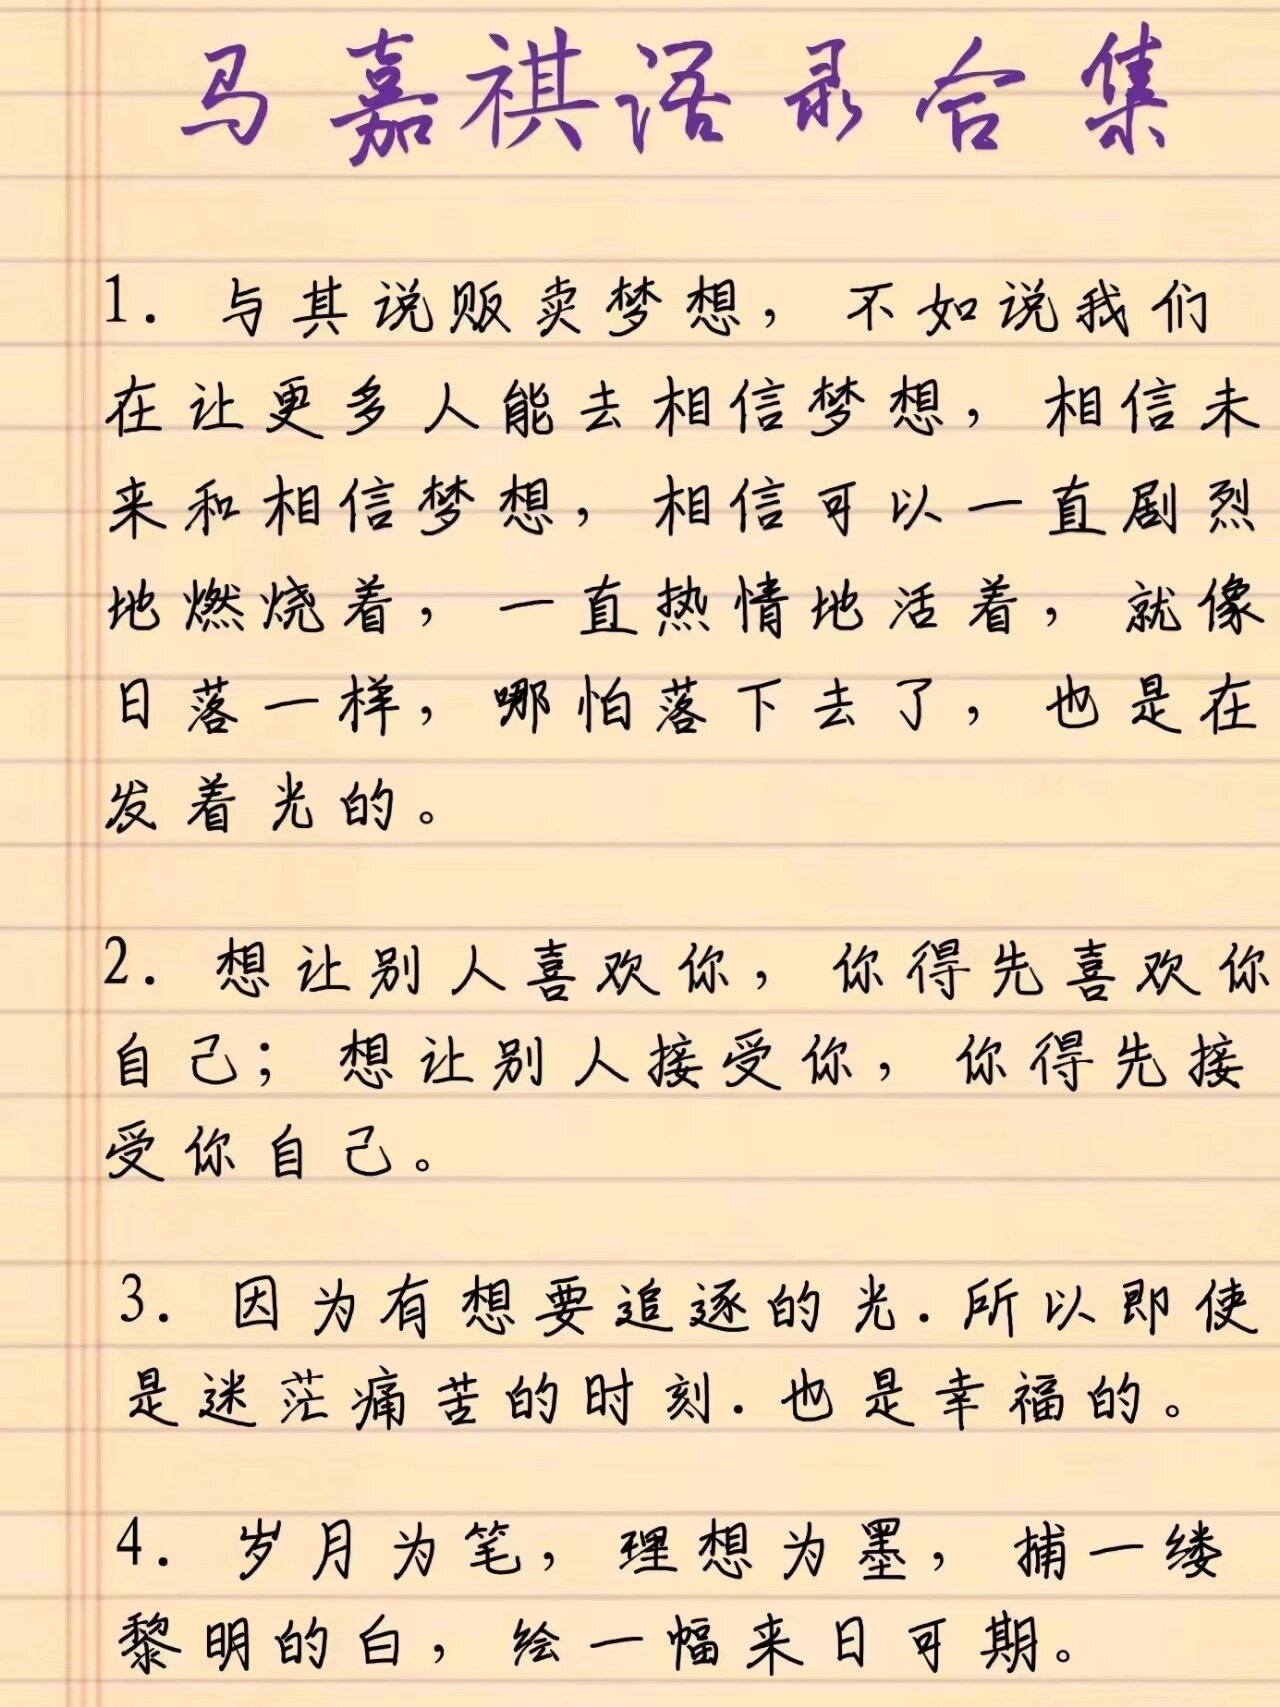 马嘉祺语录合集
1. 与其说贩卖梦想，不如说我们
在让更多人能去相信梦想，相信未
来和相信梦想，相信可以一直剧烈
地燃烧着，一直热情地活着，就像
日落一样，哪怕落下去了，也是在
发着光的。
2. 想让别人喜欢你，你得先喜欢你
自己；想让别人接受你，你得先接
受你自己。
3. 因为有想要追逐的光.所以即使
是迷茫痛苦的时刻.也是幸福的。
4. 岁月为笔，理想为墨，捕一缕
黎明的白，绘一幅来日可期。